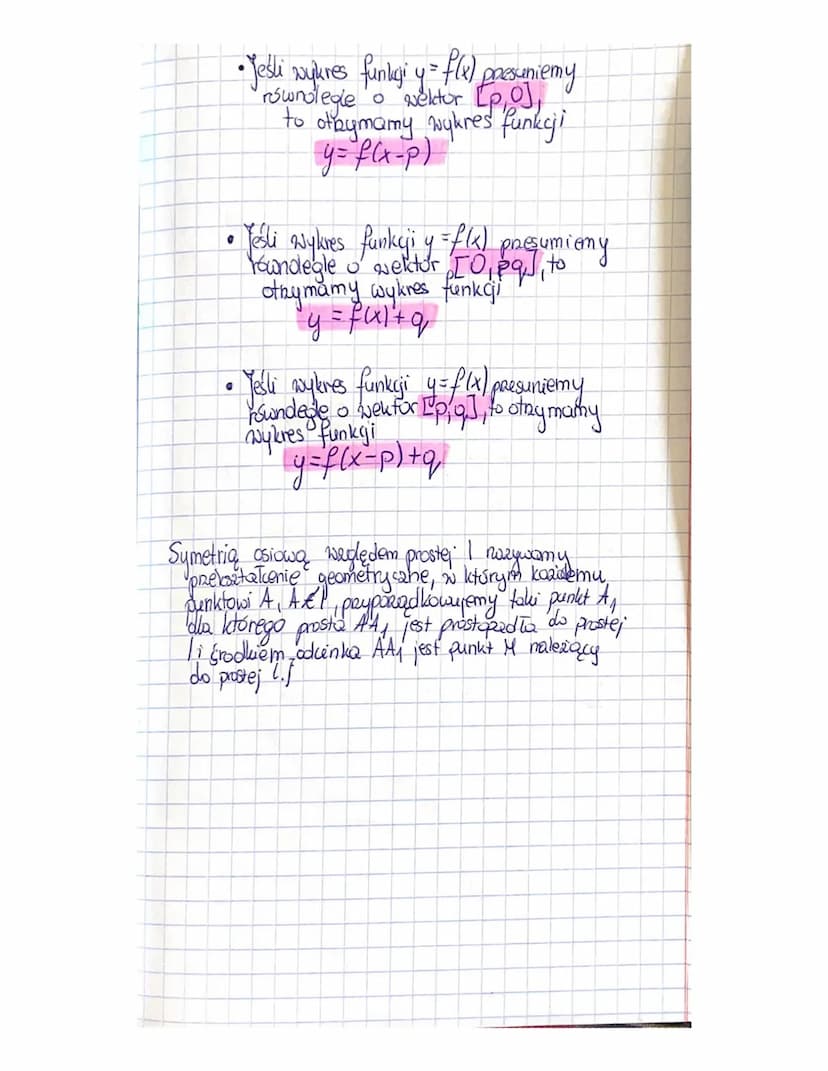 • Jeśli wykres funkcji y = f(x) przesuniemy
równolegle o wektor [p,0],
to otrzymamy wykres funkcji
y = f(x-p)
• Jeśli wykres funkcji y = f(x) przesumiemy
równolegle o wektor [0, pq], to
otrzymamy wykres funkcji
y = f(x) + q
• Jeśli wykres funkcji y = f(x) przesuniemy
równolegle o wektor [p,q], to otrzymamy
wykres funkcji
y = f(x-p) + q
Symetrią osiową względem prostej l nazywamy
przekształcenie geometryczne, w którym każdemu
punktowi A, A∉l, przyporządkowujemy taki punkt A₁
dla którego prosta AA₁ jest prostopadła do prostej
l i środkiem odcinka AA₁ jest punkt M należący
do prostej l.